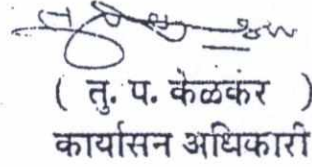 ( तु. प. केळकर )
कार्यासन अधिकारी